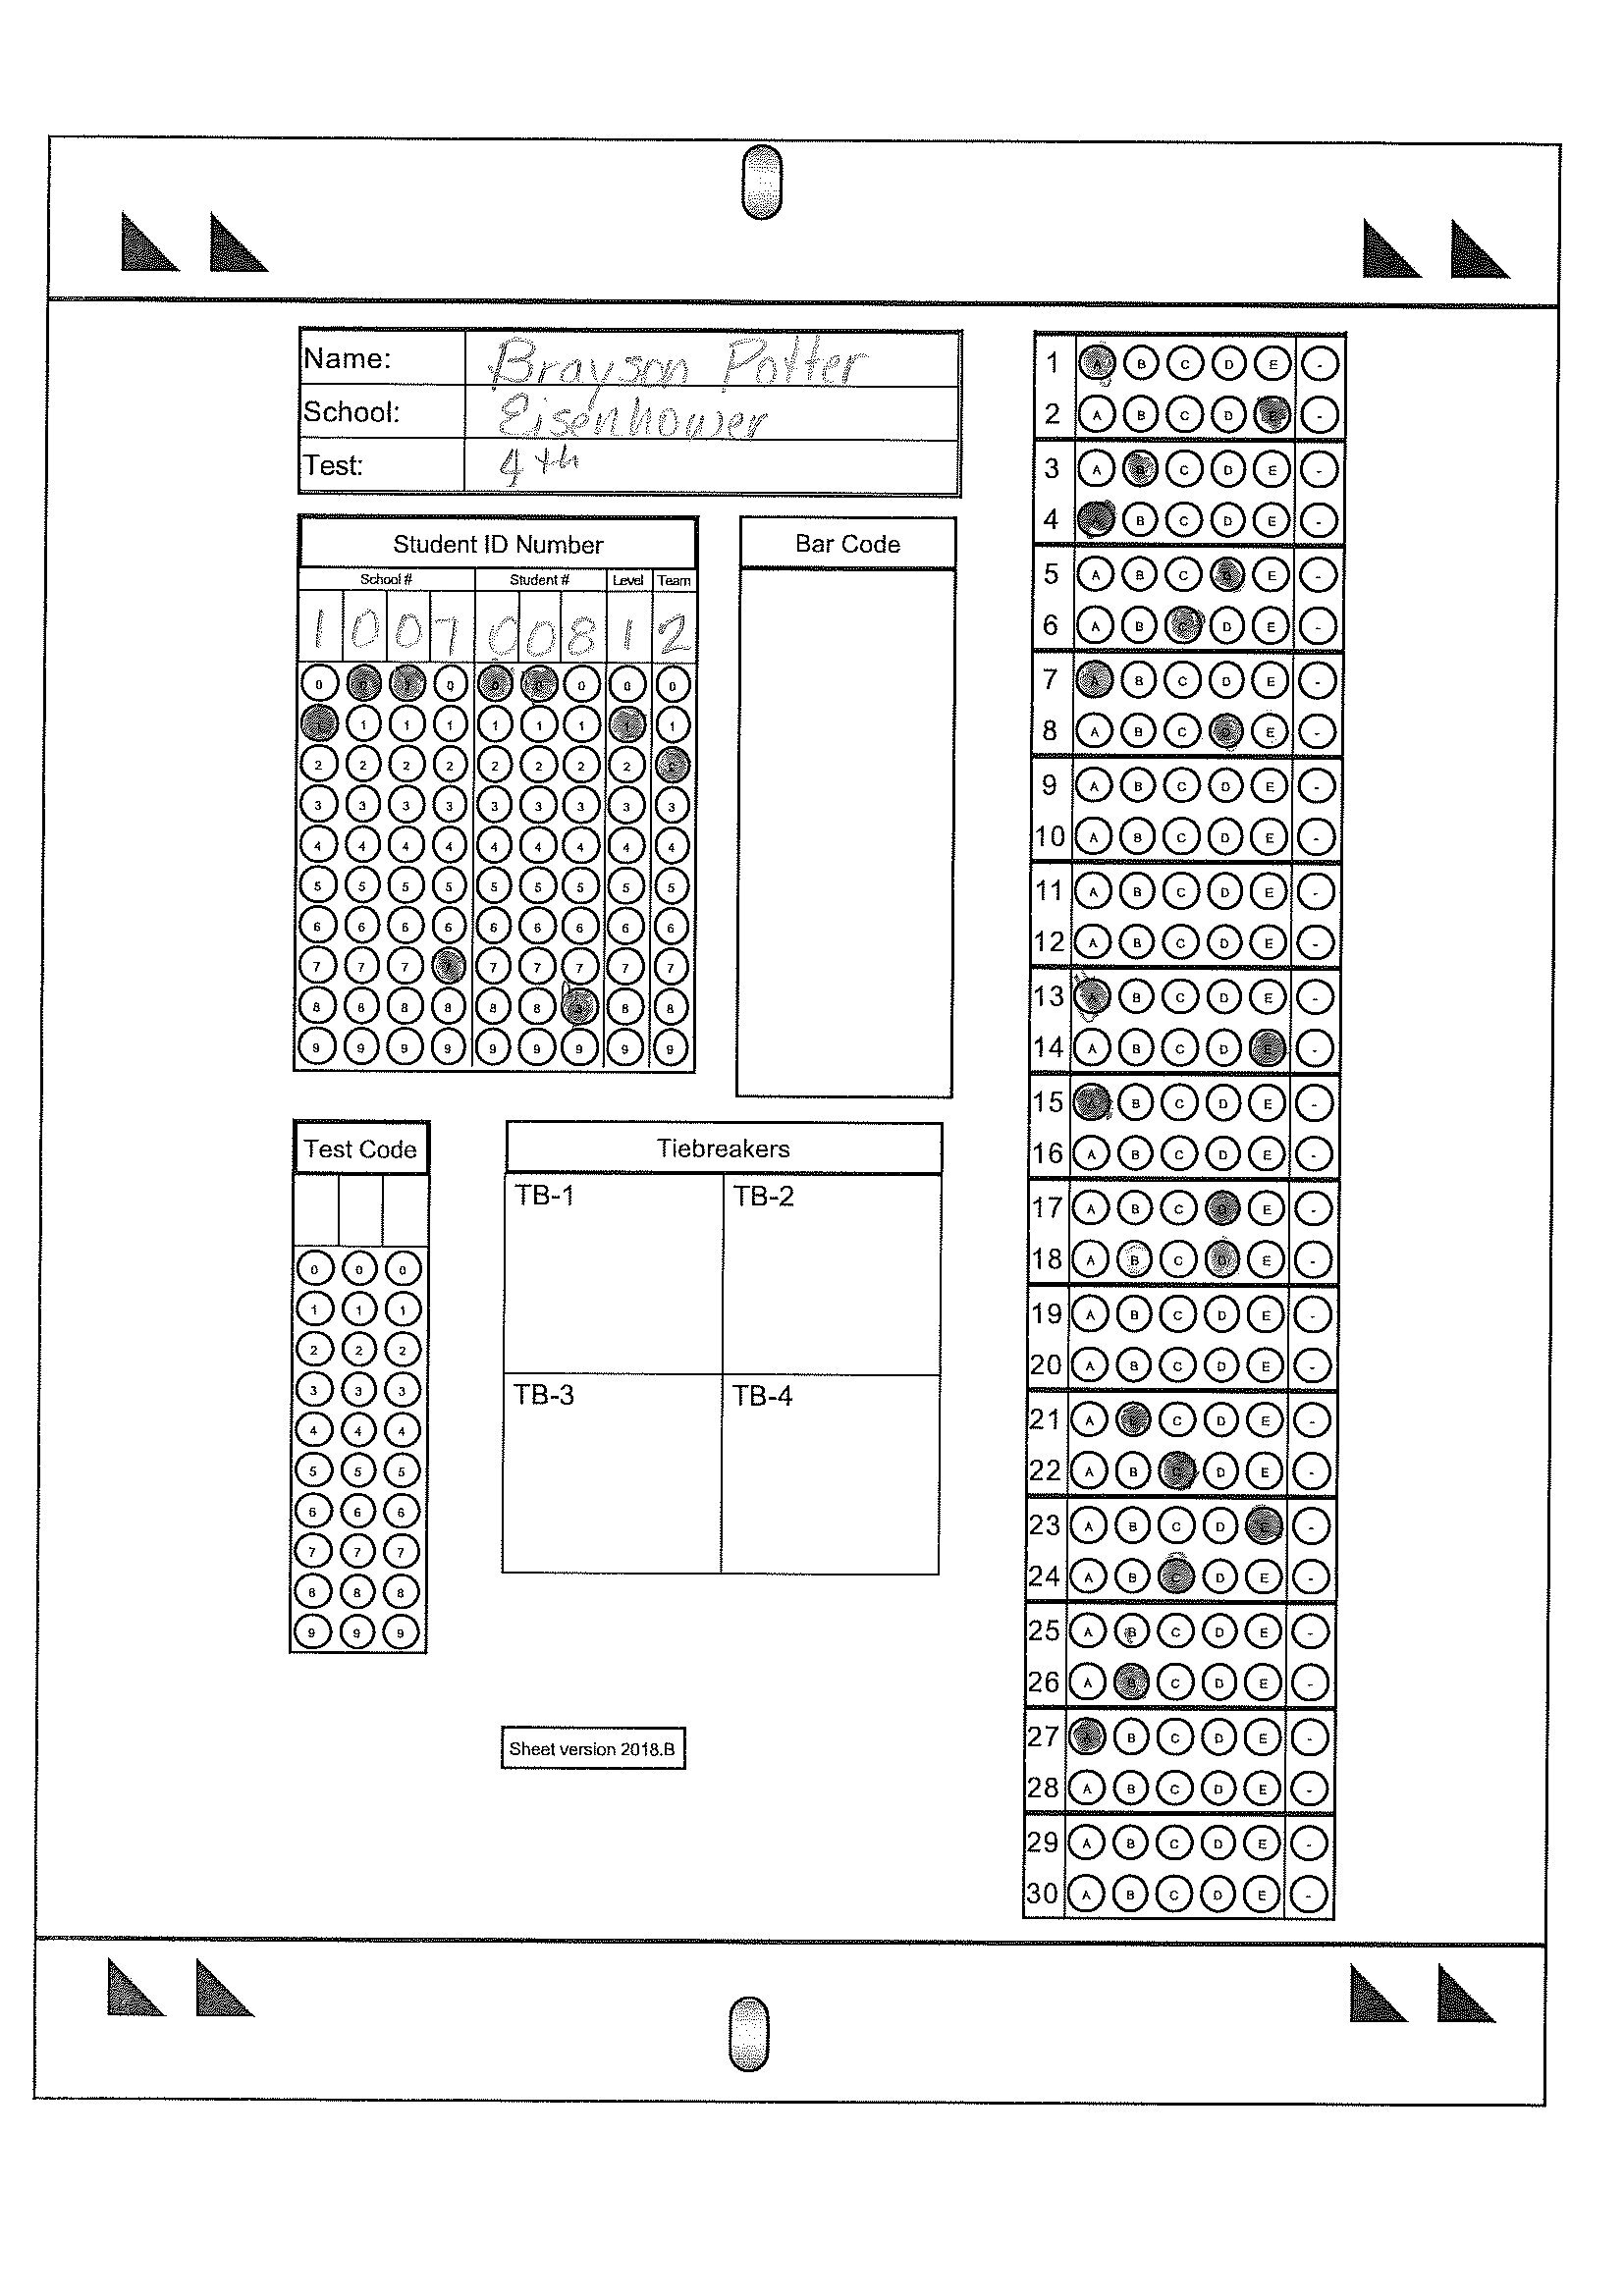 Name: Brayson Potter
School: Eisenhower
Test: 4th
Student ID Number
School # Student # Level Team
1 0 0 7 0 0 8 1 2
0 0 0 0 0 0 0 0 0
1 1 1 1 1 1 1 1 1
2 2 2 2 2 2 2 2 2
3 3 3 3 3 3 3 3 3
4 4 4 4 4 4 4 4 4
5 5 5 5 5 5 5 5 5
6 6 6 6 6 6 6 6 6
7 7 7 7 7 7 7 7 7
8 8 8 8 8 8 8 8 8
9 9 9 9 9 9 9 9 9
Bar Code
Test Code
0 0 0
1 1 1
2 2 2
3 3 3
4 4 4
5 5 5
6 6 6
7 7 7
8 8 8
9 9 9
Tiebreakers
TB-1 TB-2
TB-3 TB-4
Sheet version 2018.B
1 A B C D E -
2 A B C D E -
3 A B C D E -
4 A B C D E -
5 A B C D E -
6 A B C D E -
7 A B C D E -
8 A B C D E -
9 A B C D E -
10 A B C D E -
11 A B C D E -
12 A B C D E -
13 A B C D E -
14 A B C D E -
15 A B C D E -
16 A B C D E -
17 A B C D E -
18 A B C D E -
19 A B C D E -
20 A B C D E -
21 A B C D E -
22 A B C D E -
23 A B C D E -
24 A B C D E -
25 A B C D E -
26 A B C D E -
27 A B C D E -
28 A B C D E -
29 A B C D E -
30 A B C D E -